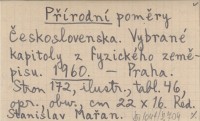 Přírodní poměry
Československa. Vybrané
kapitoly z fyzického země-
pisu. 1960. – Praha.
Stran 172, ilustr., tabl. 46,
opr., obur., cm 22 x 16. Red.
Stanislav Mařan.